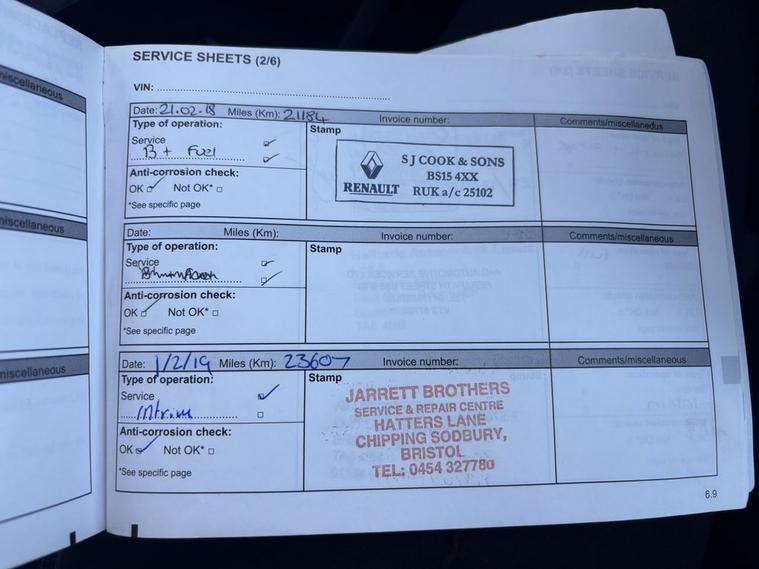 miscellaneous
SERVICE SHEETS (2/6)
VIN:
Date: 21.02.18 Miles (Km): 21184 Invoice number: Comments/miscellaneous
Type of operation:
Stamp
Service
B + Fuel
Anti-corrosion check:
OK Not OK*
*See specific page
RENAULT
S J COOK & SONS
BS15 4XX
RUK a/c 25102
miscellaneous
Date: Miles (Km): Invoice number: Comments/miscellaneous
Type of operation:
Stamp
Service
Anti-corrosion check:
OK Not OK*
*See specific page
miscellaneous
Date: 1/2/19 Miles (Km): 23607 Invoice number: Comments/miscellaneous
Type of operation:
Stamp
Service
Anti-corrosion check:
OK Not OK*
*See specific page
JARRETT BROTHERS
SERVICE & REPAIR CENTRE
HATTERS LANE
CHIPPING SODBURY,
BRISTOL
TEL: 0454 327780
6.9